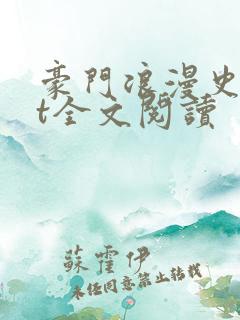 豪門浪漫史
t全文閱讀
蘇霍伊
未经同意禁止转载